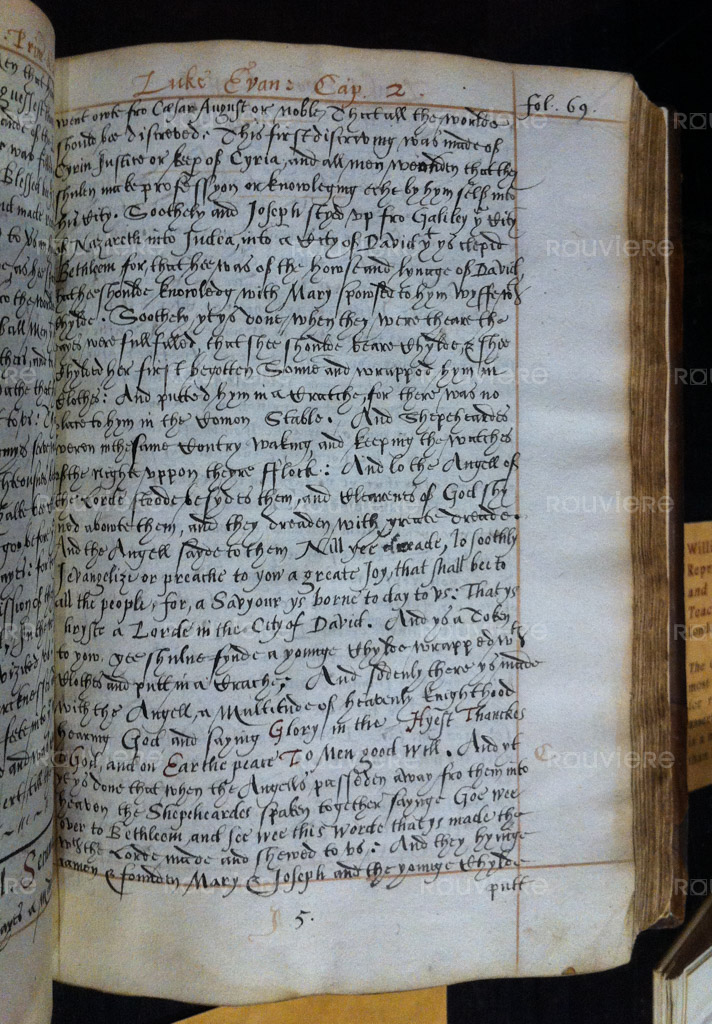 Luke Evan: Cap. 2.
fol. 69.
went owte fro Cesar August or noble, That all the worlde
shoulde bee discreved: This first discriving was made of
Cyrin Justice or keep of Cyria, and all men wenden that they
shulen make professyon or knowleging eche by hym self into
his City. Soothely and Joseph styed up fro Galiley yͤ City
of Nazareth into Judea, into a City of David yͭ ys cleped
Bethleem for, that hee was of the howse and lynage of David,
that hee shoulde knowledg with Mary spowsed to hym wyffe wͭʰ
chylde. Soothely yt ys done, when they were theare the
dayes were fullfilled, that shee shoulde beare chylde, & shee
chylded her first begotten Sonne and wrapped hym in
Clothes: And putted hym in a Cratche, for there was no
place to hym in the Comon Stable. And Shepeheardes
weren in the same Contry waking and keeping the watches
of the nighte uppon theyre fflock: And lo the Angell of
the Lorde stoode besydes them, and Clearenes of God shy
ned aboute them, and they dreaden with greate dreade.
And the Angell sayde to them Nill yee dreade, lo soothly
I evangelize or preache to yow a greate Joy, that shall bee to
all the people, for, a Savyour ys borne to day to us: That ys
Chryste a Lorde in the City of David. And ys a Token
to yow. yee shulne fynde a younge Chylde wrapped wͭʰ
Clothes and putt in a Crache; And sodenly there ys made
with the Angell, a Multitude of heavenly knighthood
hearing God and saying Glory in the Hyest Thanckes
to God, and on Earthe peace To Men good will. And yt
ys done that when the Angells passeden away fro them into
heaven the Shepeheardes spaken together sayinge Goe wee
over to Bethleem and see wee this worde that ys made the
wͭʰ the Lorde made and shewed to us: And they hyinge
camen & founden Mary & Joseph and the younge Chylde
putt
5.
ROUVIERE
ROUVIERE
ROUVIERE
ROUVIERE
ROUVIERE
ROUVIERE